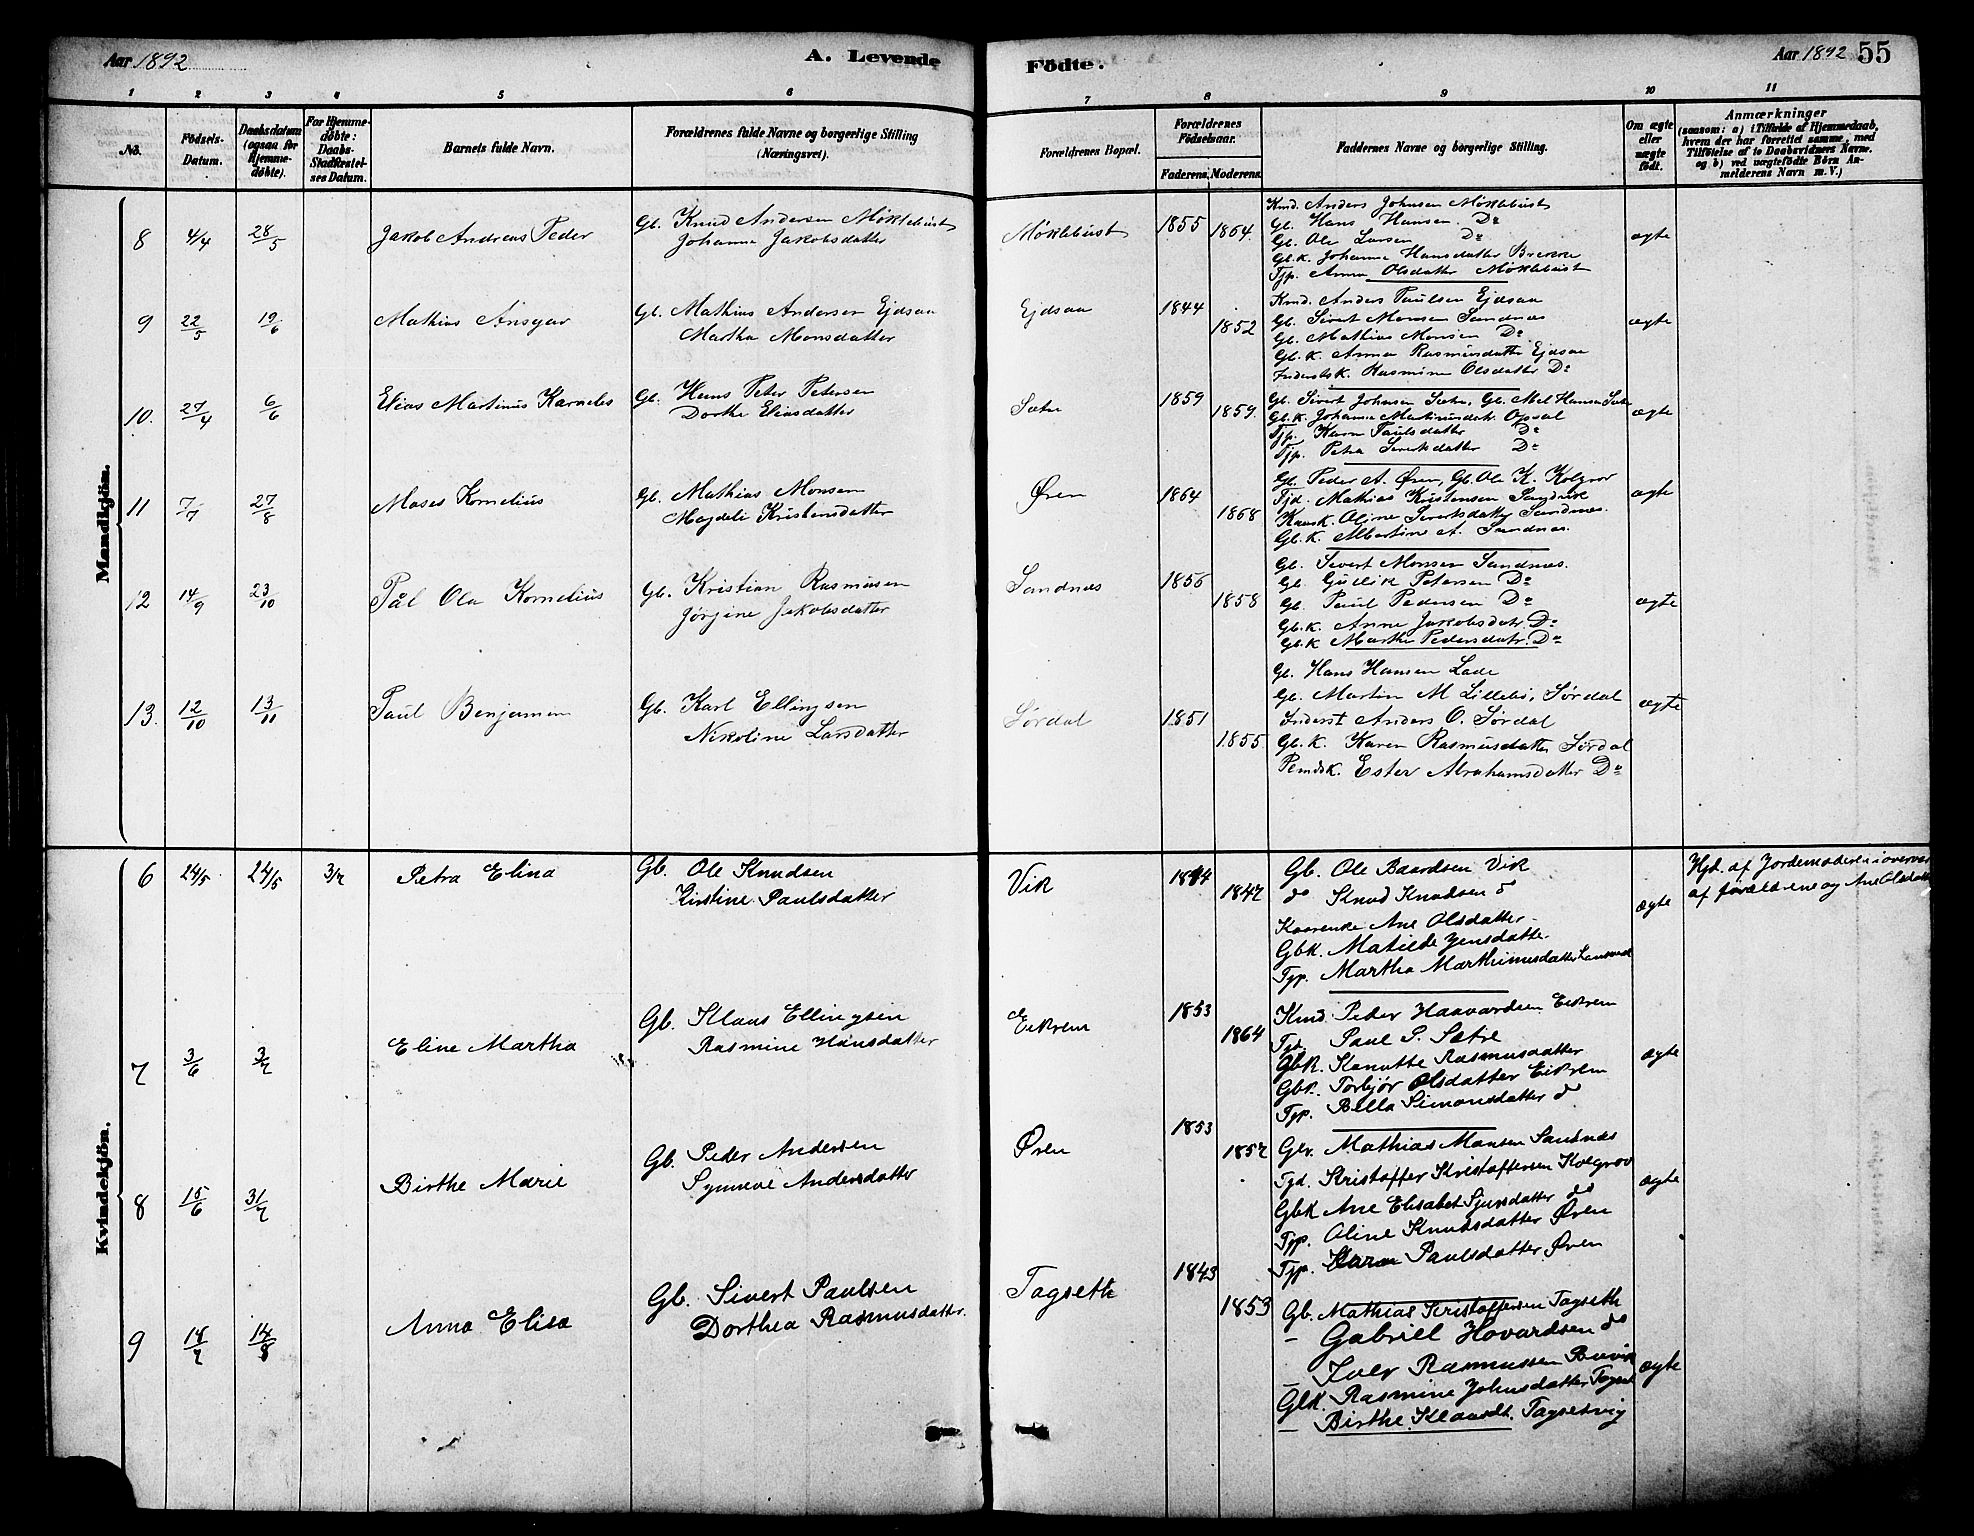 Aar 1892
A. Levende
Födte.
Aar 1892 55
1 2 3 4 5 6 7 8 9 10 11
No.
Födsels-Datum.
Daabsdatum (ogsaa for Hjemme-döbte).
For Hjemme-döbte: Daabs-Stadfæstel-ses Datum.
Barnets fulde Navn.
Forældrenes fulde Navne og borgerlige Stilling (Næringsvei).
Forældrenes Bopæl.
Forældrenes Födselsaar.
Faderens. Moderens.
Faddernes Navne og borgerlige Stilling.
Om ægte eller uægte födt.
Anmærkninger
(saasom: a) i Tilfælde af Hjemmedaab, hvem der har forrettet samme, med Tilföielse af to Daabsvidners Navne. og b) ved uægtefödte Börn An-melderens Navn m. V.)
Mandkjön.
8 4/4 28/5 Jakob Andreas Peder
Gb. Knud Andersen Møklebust
Johanne Jakobsdatter
Møklebust 1855 1864
Kmd. Anders Johnsen Møklebust
Gb. Hans Hansen Do
Gb. Ole Larsen Do
Gb.K. Johanne Hansdatter Brekke
Tjp. Anna Olsdatter Møklebust
ægte
9 22/5 19/6 Mathias Ansgar
Gb. Mathias Andersen Ejdsaa
Martha Monsdatter
Ejdsaa 1844 1852
Kmd. Anders Paulsen Ejdsaa
Gb. Sivert Monsen Sandnæs
Gb. Mathias Monsen Do
Gb.K. Anna Rasmusdatter Ejdsaa
Inderstk. Rasmine Olsdatter Do
ægte
10. 27/4 6/6 Elias Martinus Karneles
Gb. Hans Peter Petersen
Dorthe Eliasdatter
Sætre 1859 1859.
Gb. Sivert Johnsen Sætre, Gb. Mel Hansen Sætre
Gb.K. Johanne Martinusdatr. Opsal
Tjp. Karn Paulsdatter Do
Tjp. Petra Sivertsdatter Do
ægte
11 7/7 27/8 Moses Kornelius
Gb. Mathias Monsen
Magdeli Kristensdatter
Øren 1864 1868
Gb. Peder A. Øren, Gb. Ole K. Kolgrov
Tjd. Mathias Kristensen Sandvik
Kaark. Oline Sivertsdatter Sandnes.
Gb.K. Albertine A. Sandnæs.
ægte
12 14/9 23/10 Pål Ola Kornelius
Gb. Kristian Rasmusen
Jørgine Jakobsdatter
Sandnæs 1856 1858
Gb. Sivert Monsen Sandnæs.
Gb. Gullik Petersen Do
Gb. Paul Pedersen Do
Gb.K. Anne Jakobsdatr. Do
Gb.K Marthe Pedersdatr. Do
ægte
13. 12/10 13/11 Paul Benjamen
Gb. Karl Ellingsen
Nikoline Larsdatter
Sørdal 1851 1855
Gb. Hans Hansen Lade
Gb. Martin M Lillebø, Sørdal
Inderst Anders O. Sørdal
Gb.K. Karen Rasmusdatter Sørdal
Pemdsk. Ester Abrahamsdatter Do
ægte
Kvindekjön.
6 24/5 24/5 3/7 Petra Elina
Gb. Ole Knudsen
Kirstine Paulsdatter
Vik 1844 1847
Gb. Ole Baardsen Vik
do Knud Knudsen do
Kaarenke Ane Olsdatter
GbK. Matilde Jensdatter
Tjp. Martha Marthinusdatter
ægte
Hjd. af Jordemoderen i overvær
af forældrene og Ane Olsdatter
7 3/6 3/7 Eline Martha
Gb. Klaus Ellingsen
Rasmine Hansdatter
Eikrem 1853 1864
Kmd Peder Haavardsen Eikrem
Tjd. Paul P. Sætre
GbK. Kanutte Rasmusdatter
GbK. Torbjør Olsdatter Eikrem
Tjp. Bella Simonsdatter do
ægte
8 15/6 31/7 Birthe Marie
Gb. Peder Andersen
Synneve Andersdatter
Øren 1853 1857
Gbr. Mathias Monsen Sandnæs
Tjd. Kristoffer Kristoffersen Kolgrov
GbK Ane Elisabet Sjursdatter do
Tjp. Oline Knutsdatter Øren
Tjp. Karen Paulsdatter Øren
ægte
9 14/7 14/8 Anna Elisa
Gb. Sivert Paulsen
Dorthea Rasmusdatter
Tagseth 1843 1853
Gb. Mathias Kristoffersen Tagseth
— Gabriel Hovardsen do
— Iver Rasmussen Buvik
GbK. Rasmine Johnsdatter Tagset
— Birthe Klausdt. Tagsetvig
ægte